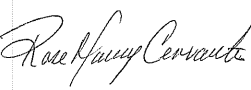 Rose Nancy Cervantes